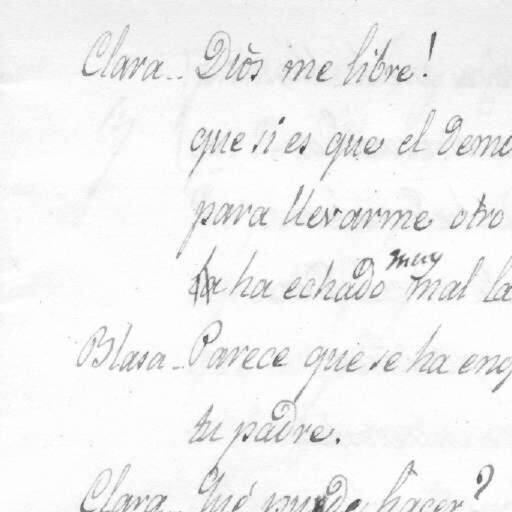 Clara.. Diős me libre!
que si es que el Demo
para llevarme otro
ha echado muy mal la
Blasa.. Parece que se ha eng
tu padre.
Clara.. Qué puede hacer?